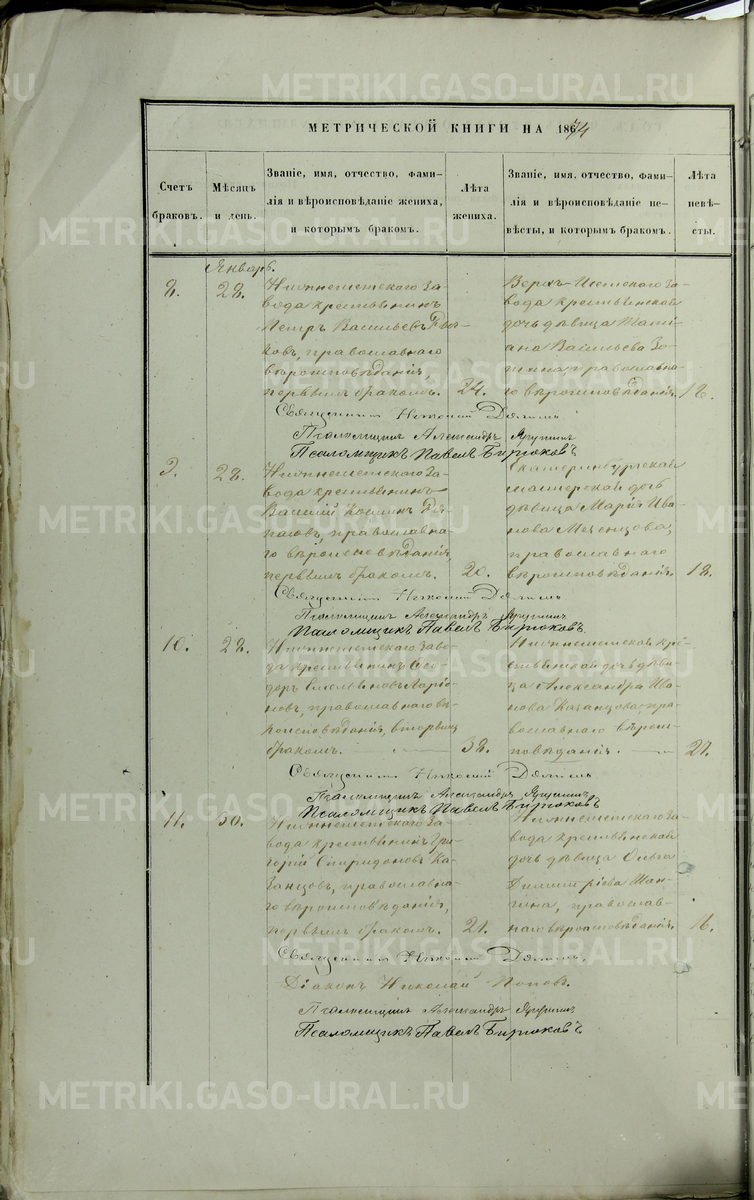 МЕТРИЧЕСКОЙ КНИГИ НА 1874
Счетъ браковъ.
Мѣсяцъ и день.
Званіе, имя, отчество, фами-
лія и вѣроисповѣданіе жениха,
и которымъ бракомъ.
Лѣта жениха.
Званіе, имя, отчество, фами-
лія и вѣроисповѣданіе не-
вѣсты, и которымъ бракомъ.
Лѣта невѣ-
сты.
Январь.
8.
28.
Нижнеисетскаго За-
вода крестьянинъ
Петръ Васильевъ
ковъ, православнаго
вѣроисповѣданія,
первымъ бракомъ.
24.
Верхъ-Исетскаго За-
вода крестьянская
дочь дѣвица Тати-
ана Васильева
православна-
го вѣроисповѣданія.
18.
Священникъ Николай
Псаломщикъ Александръ
Псаломщикъ Павелъ Бирюковъ
9.
28.
Нижнеисетскаго За-
вода крестьянинъ
Василій
православна-
го вѣроисповѣданія,
первымъ бракомъ.
20.
Екатеринбургская
мастерская дочь
дѣвица Марія Ива-
нова Мезенцова,
православнаго
вѣроисповѣданія.
18.
Священникъ Николай
Псаломщикъ Александръ
Псаломщикъ Павелъ Бирюковъ
10.
28.
Нижнеисетскаго Заво-
да крестьянинъ Ѳео-
доръ Ларіо-
новъ, православнаго вѣ-
роисповѣданія, вторымъ
бракомъ.
38.
Нижнеисетская кре-
стьянская дочь дѣви-
ца Александра Ива-
нова Казанцова, пра-
вославнаго вѣроис-
повѣданія.
21.
Священникъ Николай
Псаломщикъ Александръ
Псаломщикъ Павелъ Бирюковъ
11.
30.
Нижнеисетскаго За-
вода крестьянинъ Гри-
горій Спиридоновъ Ка-
занцовъ, православна-
го вѣроисповѣданія,
первымъ бракомъ.
21.
Нижнеисетскаго За-
вода крестьянская
дочь дѣвица Ольга
Димитріева Шан-
гина, православ-
наго вѣроисповѣданія.
16.
Священникъ Николай
Діаконъ Николай Поповъ.
Псаломщикъ Александръ
Псаломщикъ Павелъ Бирюковъ
METRIKI.GASO-URAL.RU